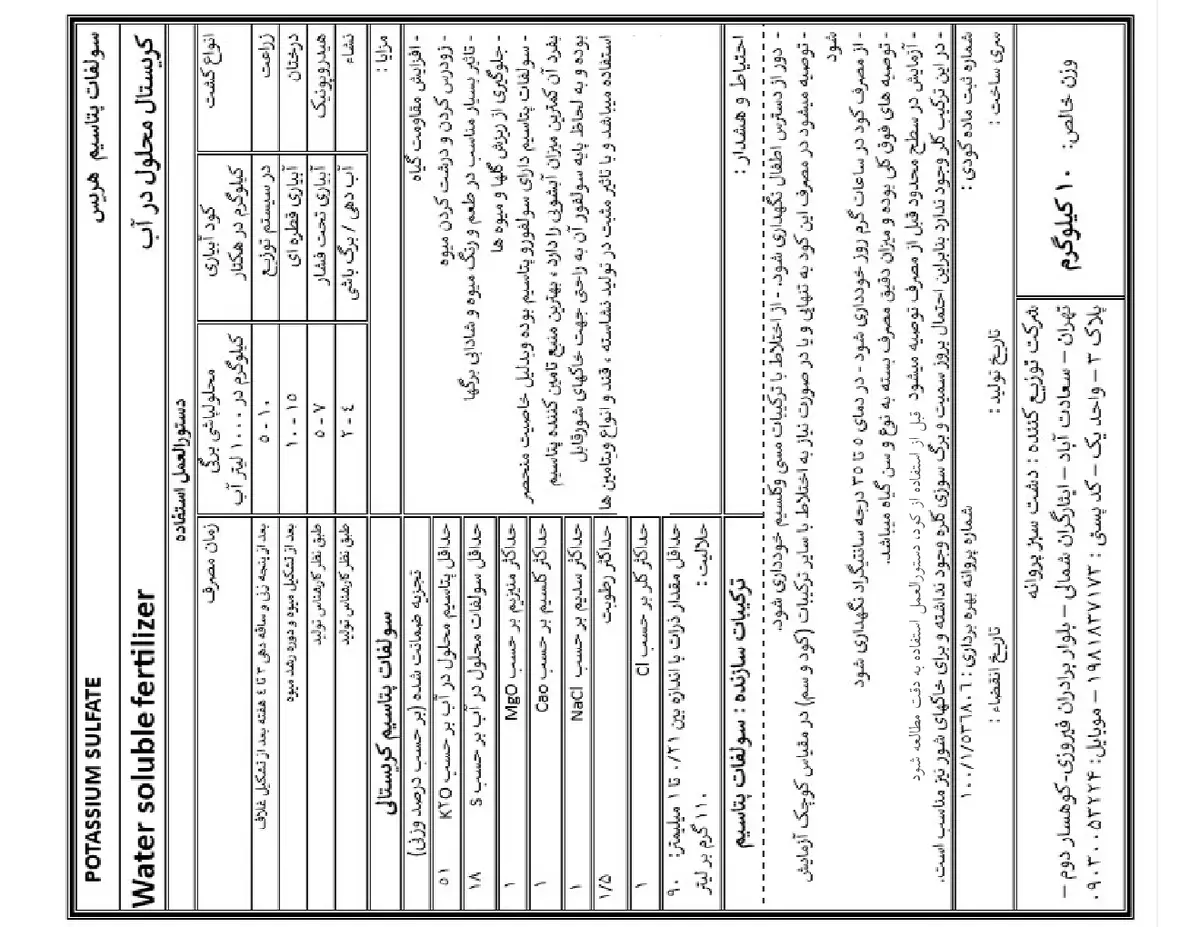 سولفات پتاسیم هربس
POTASSIUM SULFATE
کریستال محلول در آب
Water soluble fertilizer
دستورالعمل استفاده
انواع کشت
کود آبیاری
کیلوگرم در هکتار
محلولپاشی برگی
کیلوگرم در ۱۰۰۰ لیتر آب
زمان مصرف
زراعت
در سیستم توزیع
۱۰ - ۵
بعد از پنجه زنی و ساقه دهی ۳ تا ٤ هفته بعد از تشکیل غلاف
درختان
آبیاری قطره ای
۱۵ - ۱۰
بعد از تشکیل میوه و دوره رشد میوه
هیدروپونیک
آبیاری تحت فشار
۷ - ۵
طبق نظر کارشناس تولید
نشاء
آب دهی / برگ پاشی
٤ - ۲
طبق نظر کارشناس تولید
مزایا :
- افزایش مقاومت گیاه
- زودرس کردن و درشت کردن میوه
- تاثیر بسیار مناسب در طعم و رنگ میوه و شادابی برگها
- جلوگیری از ریزش گلها و میوه ها
- سولفات پتاسیم دارای سولفورو پتاسیم بوده وبدلیل خاصیت منحصر
بفرد آن کمترین میزان آبشویی را دارد ، بهترین منبع تامین کننده پتاسیم
بوده و به لحاظ پایه سولفور آن به راحتی جهت خاکهای شورقابل
استفاده میباشد و با تاثیر مثبت در تولید نشاسته ، قند و انواع ویتامین ها
سولفات پتاسیم کریستالی
تجزیه ضمانت شده (بر حسب درصد وزنی)
حداقل پتاسیم محلول در آب بر حسب K۲O
۵۱
حداقل سولفات محلول در آب بر حسب S
۱۸
حداکثر منیزیم بر حسب MgO
۱
حداکثر کلسیم بر حسب Cao
۱
حداکثر سدیم بر حسب NaCl
۱
حداکثر رطوبت
۱/۵
حداکثر کلر بر حسب Cl
۱
حداقل مقدار ذرات با اندازه بین ۰/۲۱ تا ۱ میلیمتر:
۹۰
حلالیت :
۱۱۰ گرم بر لیتر
ترکیبات سازنده : سولفات پتاسیم
احتیاط و هشدار :
- دور از دسترس اطفال نگهداری شود. - از اختلاط با ترکیبات مسی وکلسیم خودداری شود.
- توصیه میشود در مصرف این کود به تنهایی و یا در صورت نیاز به اختلاط با سایر ترکیبات (کود و سم) در مقیاس کوچک آزمایش
شود
- از مصرف کود در ساعات گرم روز خودداری شود - در دمای ۵ تا ۳۵ درجه سانتیگراد نگهداری شود
- توصیه های فوق کلی بوده و میزان دقیق مصرف بسته به نوع و سن گیاه میباشد.
- آزمایش در سطح محدود قبل از مصرف توصیه میشود قبل از استفاده از کرد، دستورالعمل استفاده به دقت مطالعه شود
- در این ترکیب کلر وجود ندارد بنابراین احتمال بروز سمیت و برگ سوزی کلره وجود نداشته و برای خاکهای شور نیز مناسب است.
شماره ثبت ماده کودی :
شماره پروانه بهره برداری : ۱۰۰/۱/۵۳۶۸۰۶
سری ساخت :
تاریخ تولید :
تاریخ انقضاء :
وزن خالص: ۱۰ کیلوگرم
شرکت توزیع کننده : دشت سبز پروانه
تهران – سعادت آباد – ایثارگران شمالی – بلوار برادران فیروزی-کوهسار دوم –
پلاک ۳ – واحد یک – کد پستی : ۱۹۸۱۸۳۷۱۷۳ – موبایل: ۰۹۰۳۰۰۵۳۲۲۴